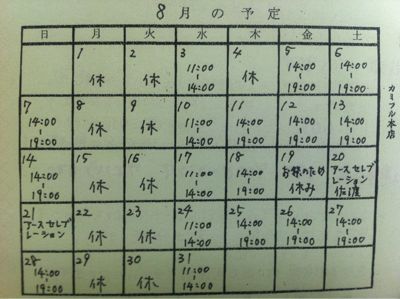 8月の予定
日 月 火 水 木 金 土
1
休
2
休
3
11:00
~
14:00
4
休
5
14:00
~
19:00
6
14:00
~
19:00
7
14:00
~
19:00
8
休
9
休
10
11:00
~
14:00
11
14:00
~
19:00
12
14:00
~
19:00
13
14:00
~
19:00
14
14:00
~
19:00
15
休
16
休
17
11:00
~
14:00
18
14:00
~
19:00
19
お祭のため
休み
20
アースセレブ
レーション
佐渡
21
アースセレブ
レーション
22
休
23
休
24
11:00
~
14:00
25
14:00
~
19:00
26
14:00
~
19:00
27
14:00
~
19:00
28
14:00
~
19:00
29
休
30
休
31
11:00
~
14:00
カミフル本店